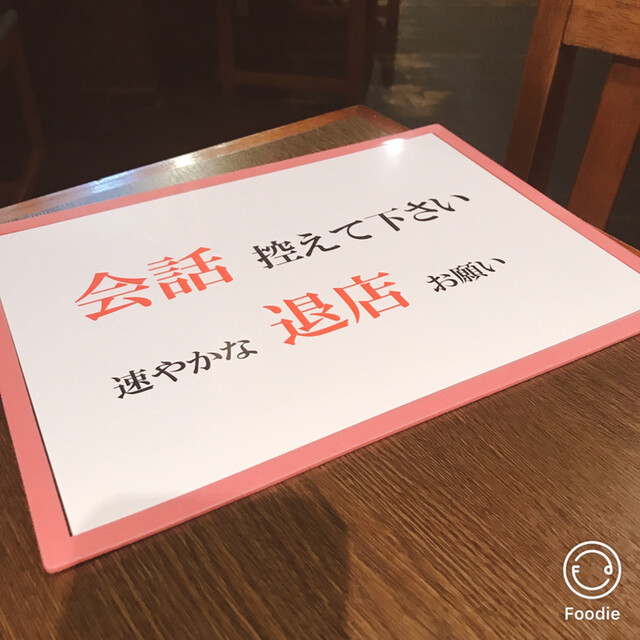 会話 控えて下さい
速やかな 退店 お願い
Foodie